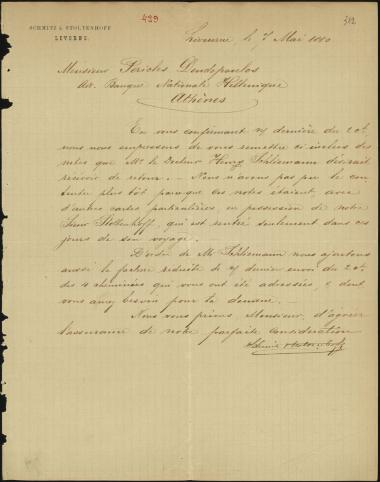 SCHMITZ & STOLTENHOFF
LEVORNE.
429
312
Livourne le 7 Mai 1880
Monsieur Pericles
Banque Nationale Hellenique
Athènes
En vous confirmant dernière du 20 ct
nous nous empressons de vous remettre ci inclus des
notes que Mr le Docteur Henry Schliemann désirait
recevoir de retour. — Nous n'avons pas pu le
plus tôt parceque ces notes étaient, avec
d'autres cartes particulières, en possession de notre
Sieur Stoltenhoff, qui est rentré seulement dans ces
jours de son voyage.
D'ordre de Mr Schliemann nous ajoutons
aussi la facture reduite de dernier envoi du 20 ct
des 4 cheminées qui vous ont été adressées, & dont
vous aurez besoin pour la douane. —
Nous vous prions, Monsieur, d'agréer
l'assurance de notre parfaite consideration
Schmitz & Stoltenhoff